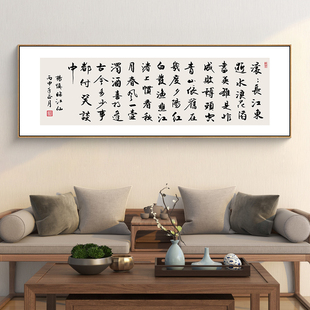 滚〻長江東
逝水浪花淘
盡英雄是非
成敗轉頭空
青山依舊在
幾度夕陽紅
白髮漁樵江
渚上慣看秋
月春風一壺
濁酒喜相逢
古今多少事
都付笑談
中
楊慎臨江仙
丙申年月